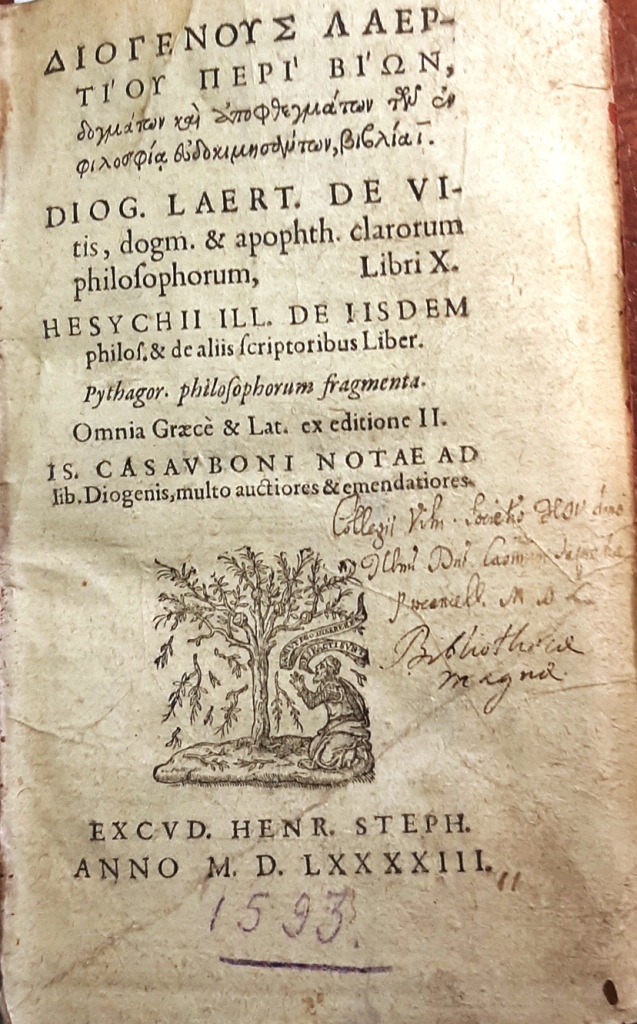 ΔΙΟΓΕΝΟΥΣ ΛΑΕΡ-
ΤΙ'ΟΥ ΠΕΡΙ' ΒΙ'ΩΝ,
δογμάτων καὶ ἀποφθεγμάτων τῶν ἐν
φιλοσφίᾳ εὐδοκιμησάντων, βιβλία ι̅.
DIOG. LAERT. DE VI-
tis, dogm. & apophth. clarorum
philoſophorum, Libri X.
HESYCHII ILL. DE IISDEM
philoſ. & de aliis ſcriptoribus Liber.
Pythagor. philoſophorum fragmenta.
Omnia Græcè & Lat. ex editione II.
IS. CASAVBONI NOTAE AD
lib. Diogenis, multo auctiores & emendatiores.
Collegii Viln. Societis
Bibliotheca
magna.
EXCVD. HENR. STEPH.
ANNO M. D. LXXXXIII.
1593.